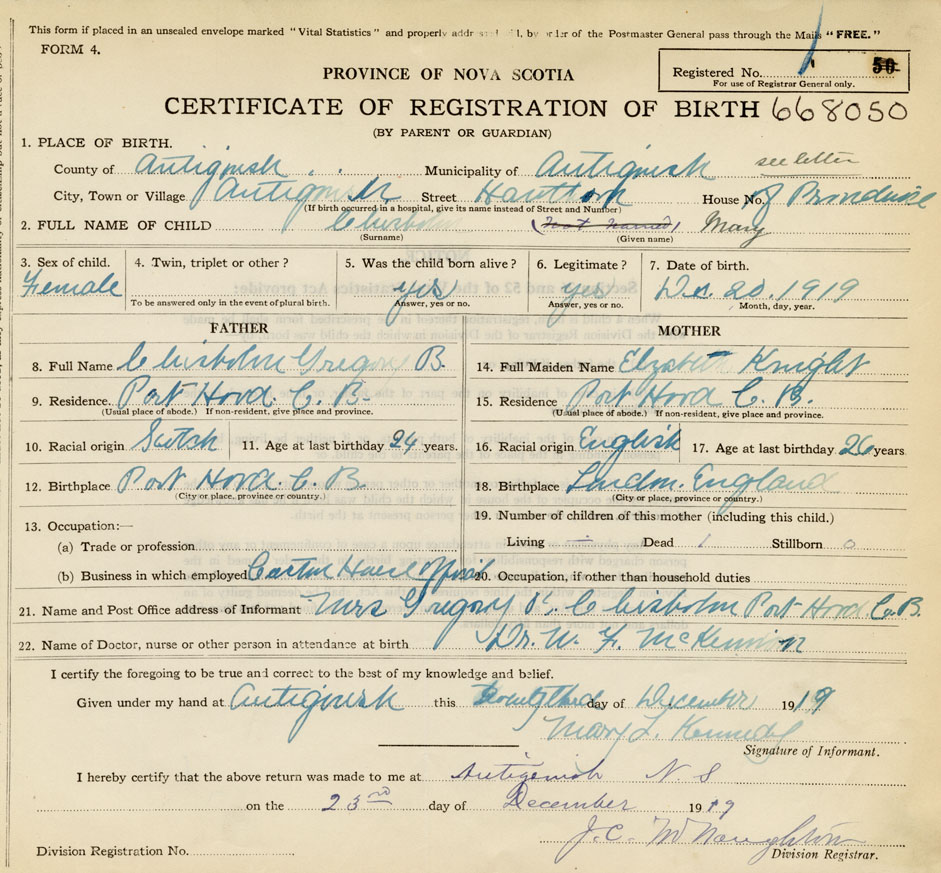 This form if placed in an unsealed envelope marked "Vital Statistics" and properly addressed will, by order of the Postmaster General pass through the Mails "FREE."
FORM 4.
Registered No. 50
For use of Registrar General only.
PROVINCE OF NOVA SCOTIA
CERTIFICATE OF REGISTRATION OF BIRTH 668050
(BY PARENT OR GUARDIAN)
1. PLACE OF BIRTH.
see letter
County of Antigonish Municipality of Antigonish
City, Town or Village Antigonish Street Hawthorn House No. of Providence
(If birth occurred in a hospital, give its name instead of Street and Number)
2. FULL NAME OF CHILD Chisholm (Not Named) Mary
(Surname) (Given name)
3. Sex of child. 4. Twin, triplet or other ? 5. Was the child born alive ? 6. Legitimate ? 7. Date of birth.
Female yes yes Dec. 20. 1919
To be answered only in the event of plural birth. Answer, yes or no. Answer, yes or no. Month, day, year.
FATHER MOTHER
8. Full Name Chisholm Gregory B. 14. Full Maiden Name Elizabeth Knight
9. Residence. Port Hood C. B. 15. Residence Port Hood C. B.
(Usual place of abode.) If non-resident, give place and province. (Usual place of abode.) If non-resident, give place and province.
10. Racial origin Scotch 11. Age at last birthday 24 years. 16. Racial origin English 17. Age at last birthday 26 years
12. Birthplace Port Hood C. B. 18. Birthplace London. England
(City or place, province or country.) (City or place, province or country.)
13. Occupation:— 19. Number of children of this mother (including this child.)
(a) Trade or profession Living — Dead 1 Stillborn 0
(b) Business in which employed 20. Occupation, if other than household duties
21. Name and Post Office address of Informant Mrs Gregory B. Chisholm Port Hood C. B.
22. Name of Doctor, nurse or other person in attendance at birth Dr. W. F. McKinnon
I certify the foregoing to be true and correct to the best of my knowledge and belief.
Given under my hand at Antigonish this day of December 1919
Mary L. Kennedy
Signature of Informant.
I hereby certify that the above return was made to me at Antigonish N S
on the 23rd day of December 1919
J. C. McNaughton
Division Registration No. Division Registrar.